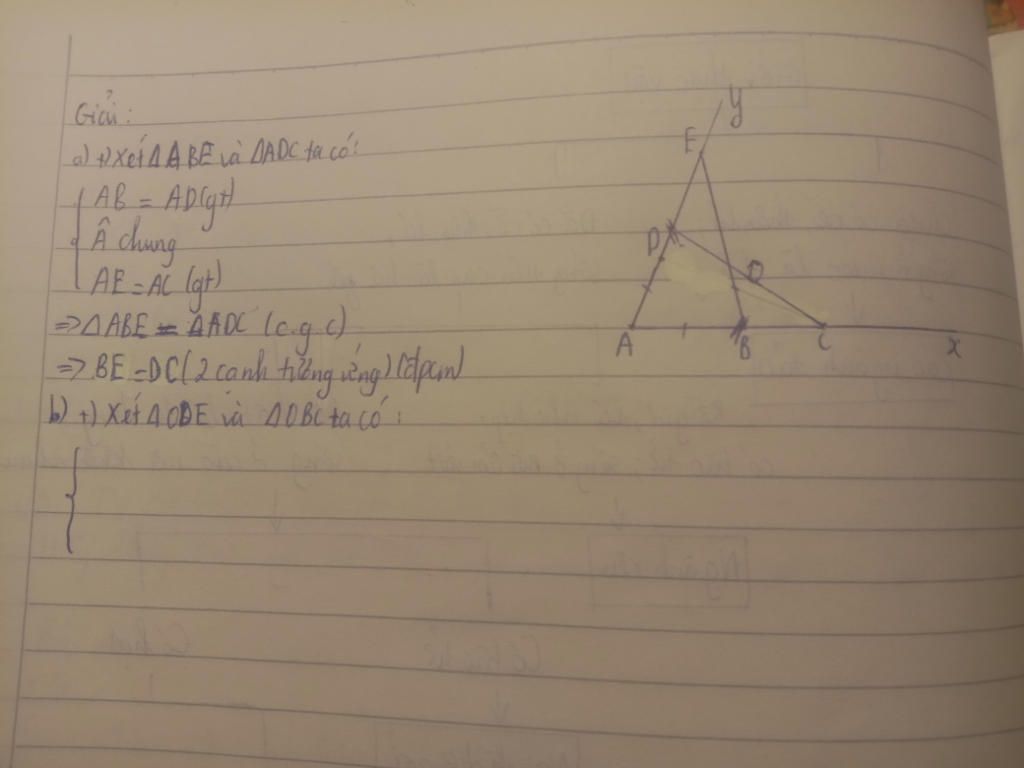 Giải:
a) +) Xét ΔABE và ΔADC ta có:
AB = AD (gt)
Â chung
AE = AC (gt)
=> ΔABE = ΔADC (c.g.c)
=> BE = DC (2 cạnh tương ứng) (đpcm)
b) +) Xét ΔODE và ΔOBC ta có:
y
E
D
O
A B C x